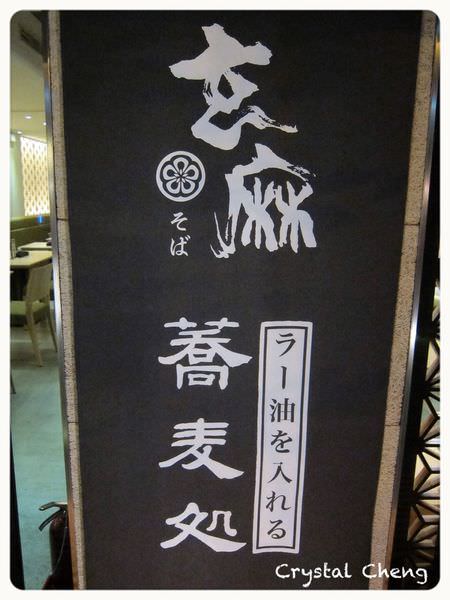 玄麻
そば
蕎麦処
ラー油を入れる
Crystal Cheng